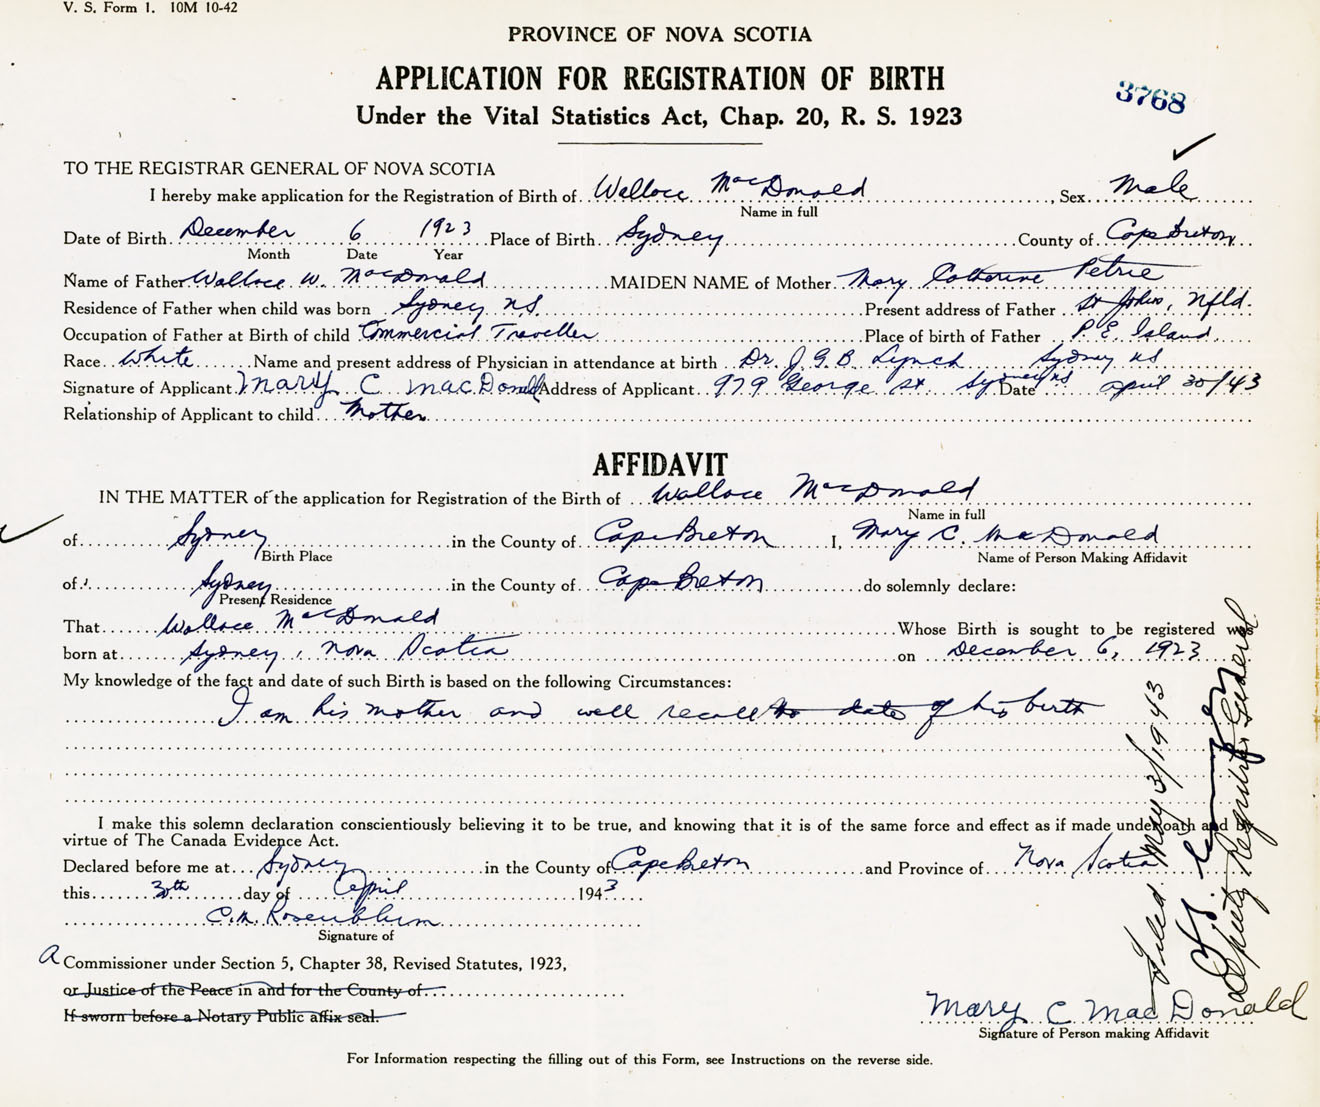 V. S. Form 1. 10M 10-42
PROVINCE OF NOVA SCOTIA
APPLICATION FOR REGISTRATION OF BIRTH
3768
Under the Vital Statistics Act, Chap. 20, R. S. 1923
TO THE REGISTRAR GENERAL OF NOVA SCOTIA
I hereby make application for the Registration of Birth of Wallace MacDonald, Sex Male
Name in full
Date of Birth December 6 1923 Place of Birth Sydney County of Cape Breton
Month Date Year
Name of Father Wallace W. MacDonald MAIDEN NAME of Mother Mary Catherine Petrie
Residence of Father when child was born Sydney NS. Present address of Father St Johns, Nfld.
Occupation of Father at Birth of child Commercial Traveller Place of birth of Father P. E. Island
Race White Name and present address of Physician in attendance at birth Dr. J. G. B. Lynch Sydney NS
Signature of Applicant Mary C MacDonald Address of Applicant 979 George St. Sydney NS Date April 30/43
Relationship of Applicant to child Mother
AFFIDAVIT
IN THE MATTER of the application for Registration of the Birth of Wallace MacDonald
Name in full
of Sydney in the County of Cape Breton I, Mary C. MacDonald
Birth Place Name of Person Making Affidavit
of Sydney in the County of Cape Breton do solemnly declare:
Present Residence
That Wallace MacDonald Whose Birth is sought to be registered was
born at Sydney, Nova Scotia on December 6, 1923
My knowledge of the fact and date of such Birth is based on the following Circumstances:
I am his mother and well recall the date of his birth
I make this solemn declaration conscientiously believing it to be true, and knowing that it is of the same force and effect as if made under oath and by
virtue of The Canada Evidence Act.
Declared before me at Sydney in the County of Cape Breton and Province of Nova Scotia
this 30th day of April 1943
C.M. Rosenblum
Signature of
a Commissioner under Section 5, Chapter 38, Revised Statutes, 1923,
or Justice of the Peace in and for the County of
If sworn before a Notary Public affix seal.
Mary C MacDonald
Signature of Person making Affidavit
For Information respecting the filling out of this Form, see Instructions on the reverse side.
Filed May 3/1943
Deputy Registrar General